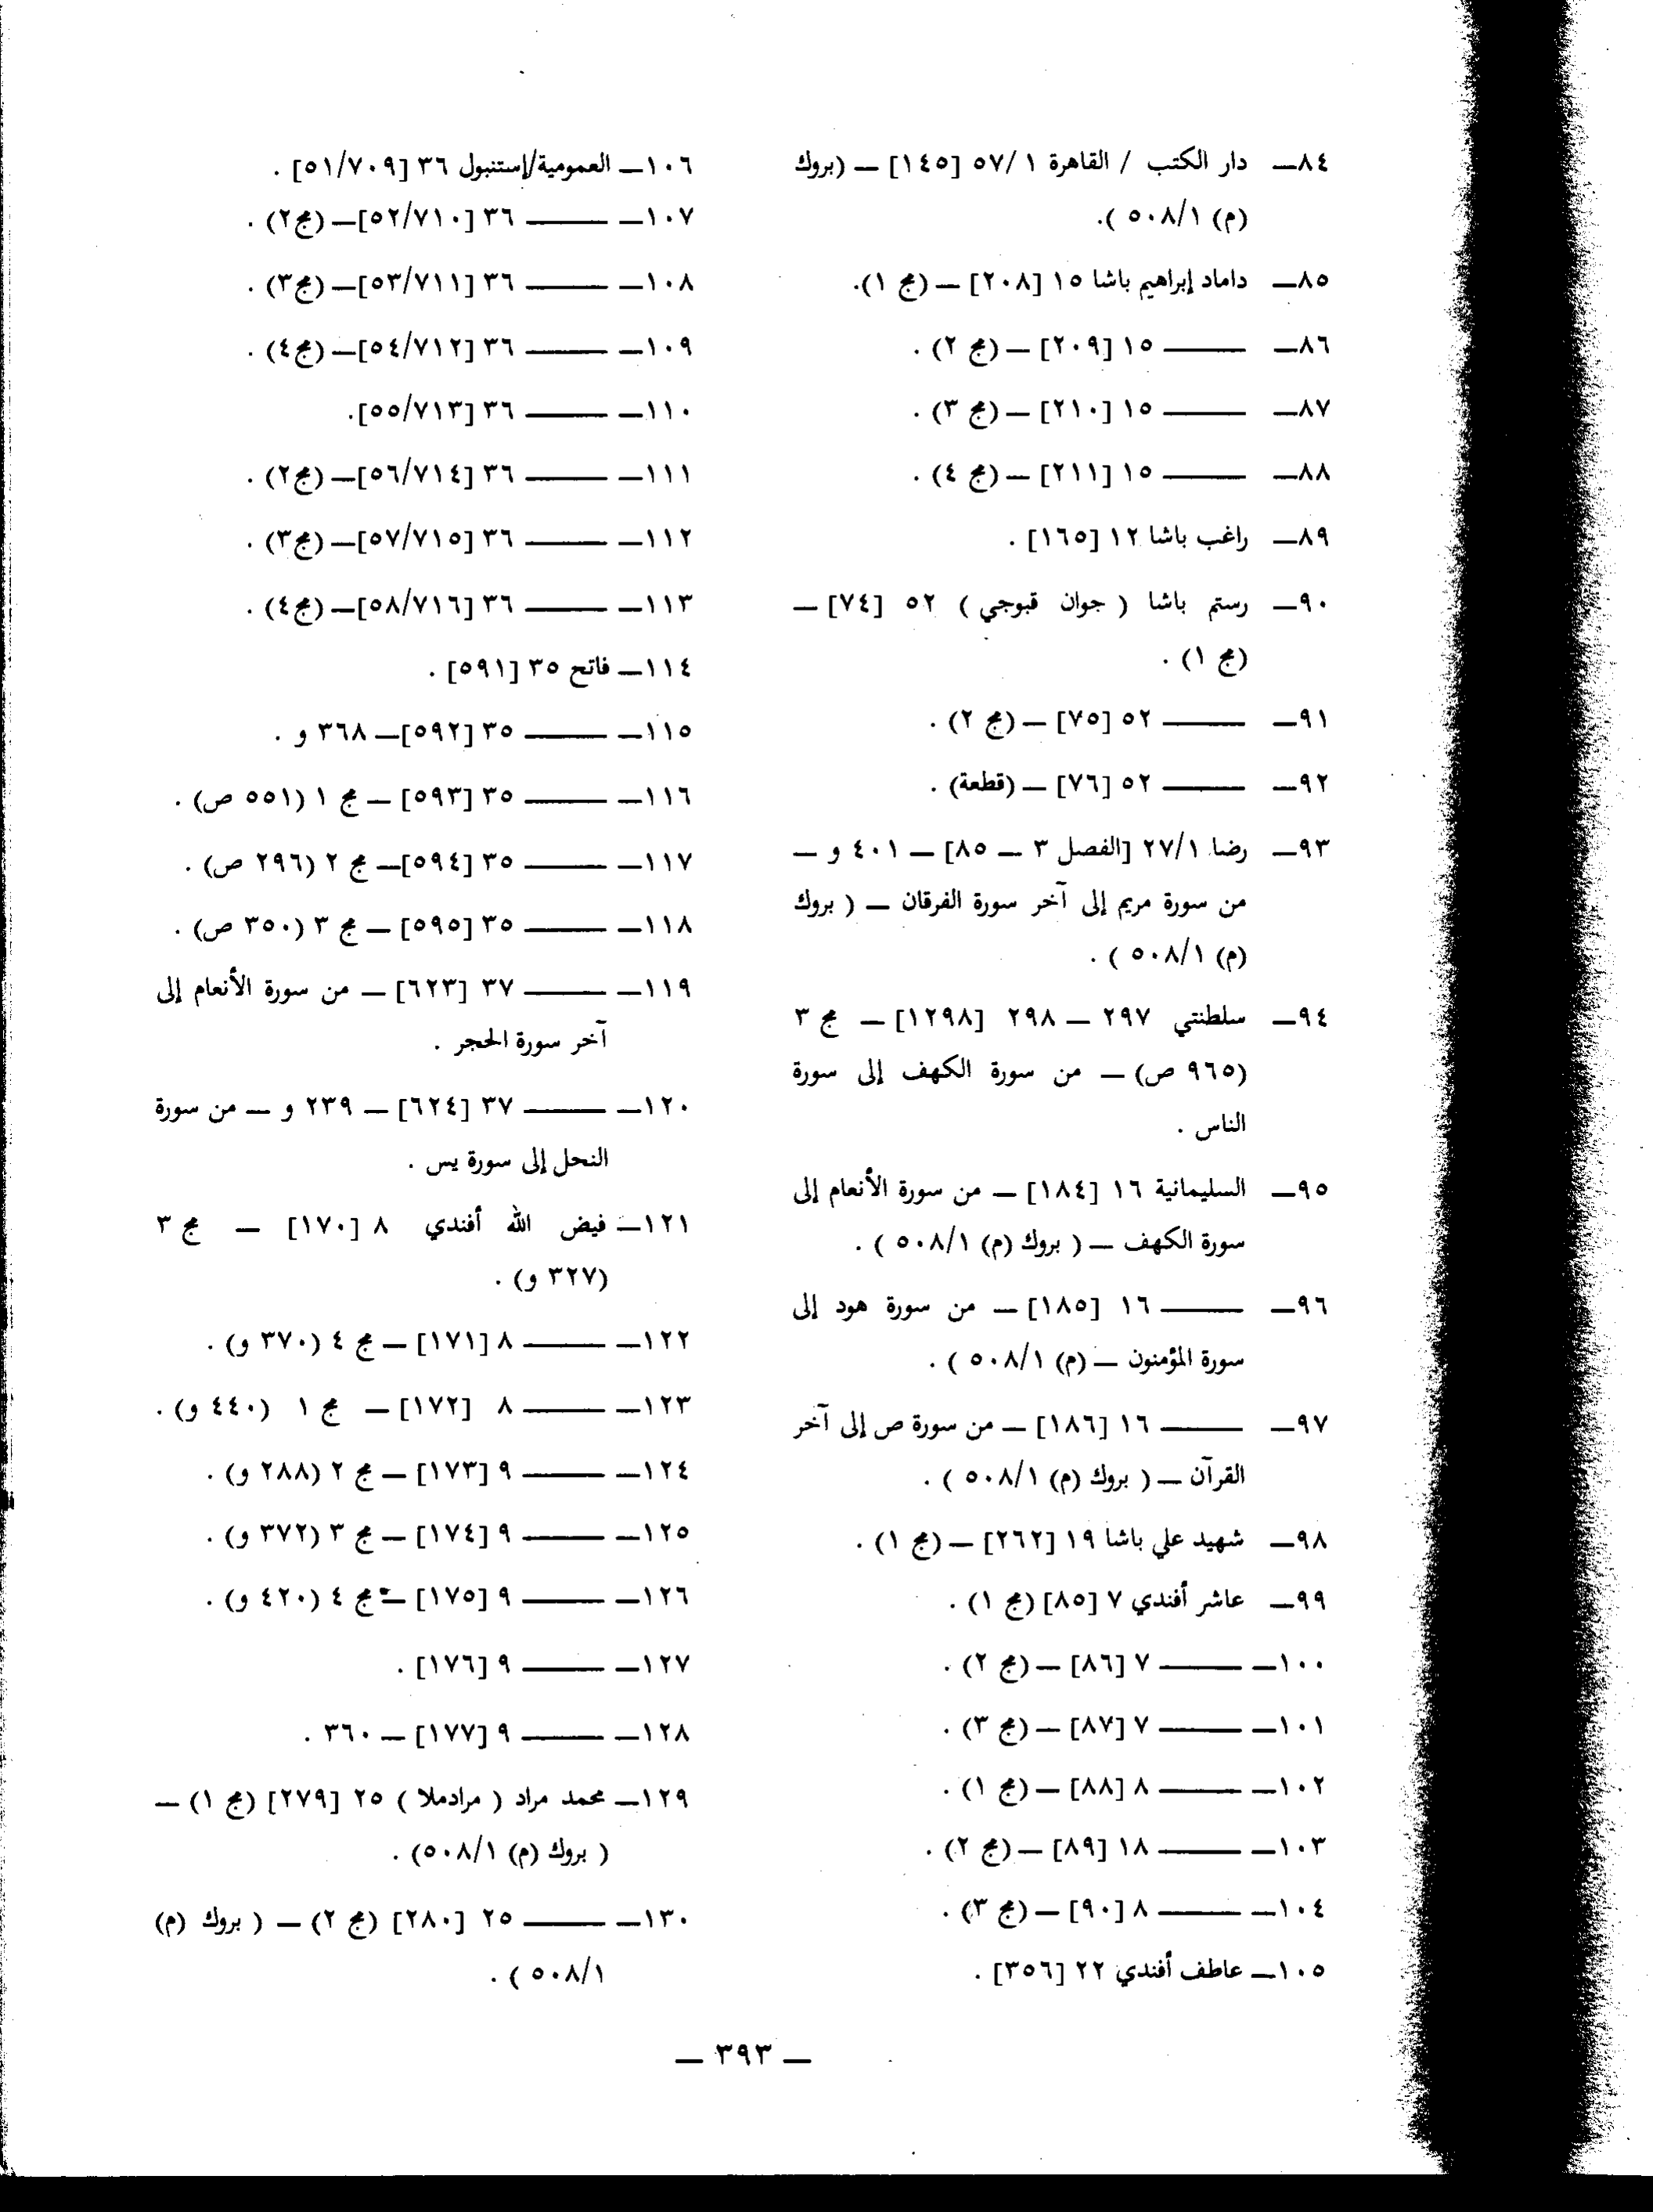 ٨٤ــ دار الكتب / القاهرة ٥٧/١ [١٤٥] ــ (بروك
(م) ٥٠٨/١ ).
٨٥ــ داماد إبراهيم باشا ١٥ [٢٠٨] ــ (مج ١).
٨٦ــ ــــــــ ١٥ [٢٠٩] ــ (مج ٢) .
٨٧ــ ــــــــ ١٥ [٢١٠] ــ (مج ٣) .
٨٨ــ ــــــــ ١٥ [٢١١] ــ (مج ٤) .
٨٩ــ راغب باشا ١٢ [١٦٥] .
٩٠ــ رستم باشا ( جوان قبوجي ) ٥٢ [٧٤] ــ
(مج ١) .
٩١ــ ــــــــ ٥٢ [٧٥] ــ (مج ٢) .
٩٢ــ ــــــــ ٥٢ [٧٦] ــ (قطعة) .
٩٣ــ رضا ٢٧/١ [الفصل ٣ ــ ٨٥] ــ ٤٠١ و ــ
من سورة مريم إلى آخر سورة الفرقان ــ ( بروك
(م) ٥٠٨/١ ) .
٩٤ــ سلطنتي ٢٩٧ ــ ٢٩٨ [١٢٩٨] ــ مج ٣
(٩٦٥ ص) ــ من سورة الكهف إلى سورة
الناس .
٩٥ــ السليمانية ١٦ [١٨٤] ــ من سورة الأنعام إلى
سورة الكهف ــ ( بروك (م) ٥٠٨/١ ) .
٩٦ــ ــــــــ ١٦ [١٨٥] ــ من سورة هود إلى
سورة المؤمنون ــ (م) ٥٠٨/١ ) .
٩٧ــ ــــــــ ١٦ [١٨٦] ــ من سورة ص إلى آخر
القرآن ــ ( بروك (م) ٥٠٨/١ ) .
٩٨ــ شهيد علي باشا ١٩ [٢٦٢] ــ (مج ١) .
٩٩ــ عاشر أفندي ٧ [٨٥] (مج ١) .
١٠٠ــ ــــــــ ٧ [٨٦] ــ (مج ٢) .
١٠١ــ ــــــــ ٧ [٨٧] ــ (مج ٣) .
١٠٢ــ ــــــــ ٨ [٨٨] ــ (مج ١) .
١٠٣ــ ــــــــ ١٨ [٨٩] ــ (مج ٢) .
١٠٤ــ ــــــــ ٨ [٩٠] ــ (مج ٣) .
١٠٥ــ عاطف أفندي ٢٢ [٣٥٦] .
١٠٦ــ العمومية/إستنبول ٣٦ [٥١/٧٠٩] .
١٠٧ــ ــــــــ ٣٦ [٥٢/٧١٠]ــ (مج٢) .
١٠٨ــ ــــــــ ٣٦ [٥٣/٧١١]ــ (مج٣) .
١٠٩ــ ــــــــ ٣٦ [٥٤/٧١٢]ــ (مج٤) .
١١٠ــ ــــــــ ٣٦ [٥٥/٧١٣].
١١١ــ ــــــــ ٣٦ [٥٦/٧١٤]ــ (مج٢) .
١١٢ــ ــــــــ ٣٦ [٥٧/٧١٥]ــ (مج٣) .
١١٣ــ ــــــــ ٣٦ [٥٨/٧١٦]ــ (مج٤) .
١١٤ــ فاتح ٣٥ [٥٩١] .
١١٥ــ ــــــــ ٣٥ [٥٩٢]ــ ٣٦٨ و .
١١٦ــ ــــــــ ٣٥ [٥٩٣] ــ مج ١ (٥٥١ ص) .
١١٧ــ ــــــــ ٣٥ [٥٩٤]ــ مج ٢ (٢٩٦ ص) .
١١٨ــ ــــــــ ٣٥ [٥٩٥] ــ مج ٣ (٣٥٠ ص) .
١١٩ــ ــــــــ ٣٧ [٦٢٣] ــ من سورة الأنعام إلى
آخر سورة الحجر .
١٢٠ــ ــــــــ ٣٧ [٦٢٤] ــ ٢٣٩ و ــ من سورة
النحل إلى سورة يس .
١٢١ــ فيض الله أفندي ٨ [١٧٠] ــ مج ٣
(٣٢٧ و) .
١٢٢ــ ــــــــ ٨ [١٧١] ــ مج ٤ (٣٧٠ و) .
١٢٣ــ ــــــــ ٨ [١٧٢] ــ مج ١ (٤٤٠ و) .
١٢٤ــ ــــــــ ٩ [١٧٣] ــ مج ٢ (٢٨٨ و) .
١٢٥ــ ــــــــ ٩ [١٧٤] ــ مج ٣ (٣٧٢ و) .
١٢٦ــ ــــــــ ٩ [١٧٥] ــ مج ٤ (٤٢٠ و) .
١٢٧ــ ــــــــ ٩ [١٧٦] .
١٢٨ــ ــــــــ ٩ [١٧٧] ــ ٣٦٠ .
١٢٩ــ محمد مراد ( مرادملا ) ٢٥ [٢٧٩] (مج ١) ــ
( بروك (م) ٥٠٨/١) .
١٣٠ــ ــــــــ ٢٥ [٢٨٠] (مج ٢) ــ ( بروك (م)
٥٠٨/١ ) .
ــ ٣٩٣ ــ